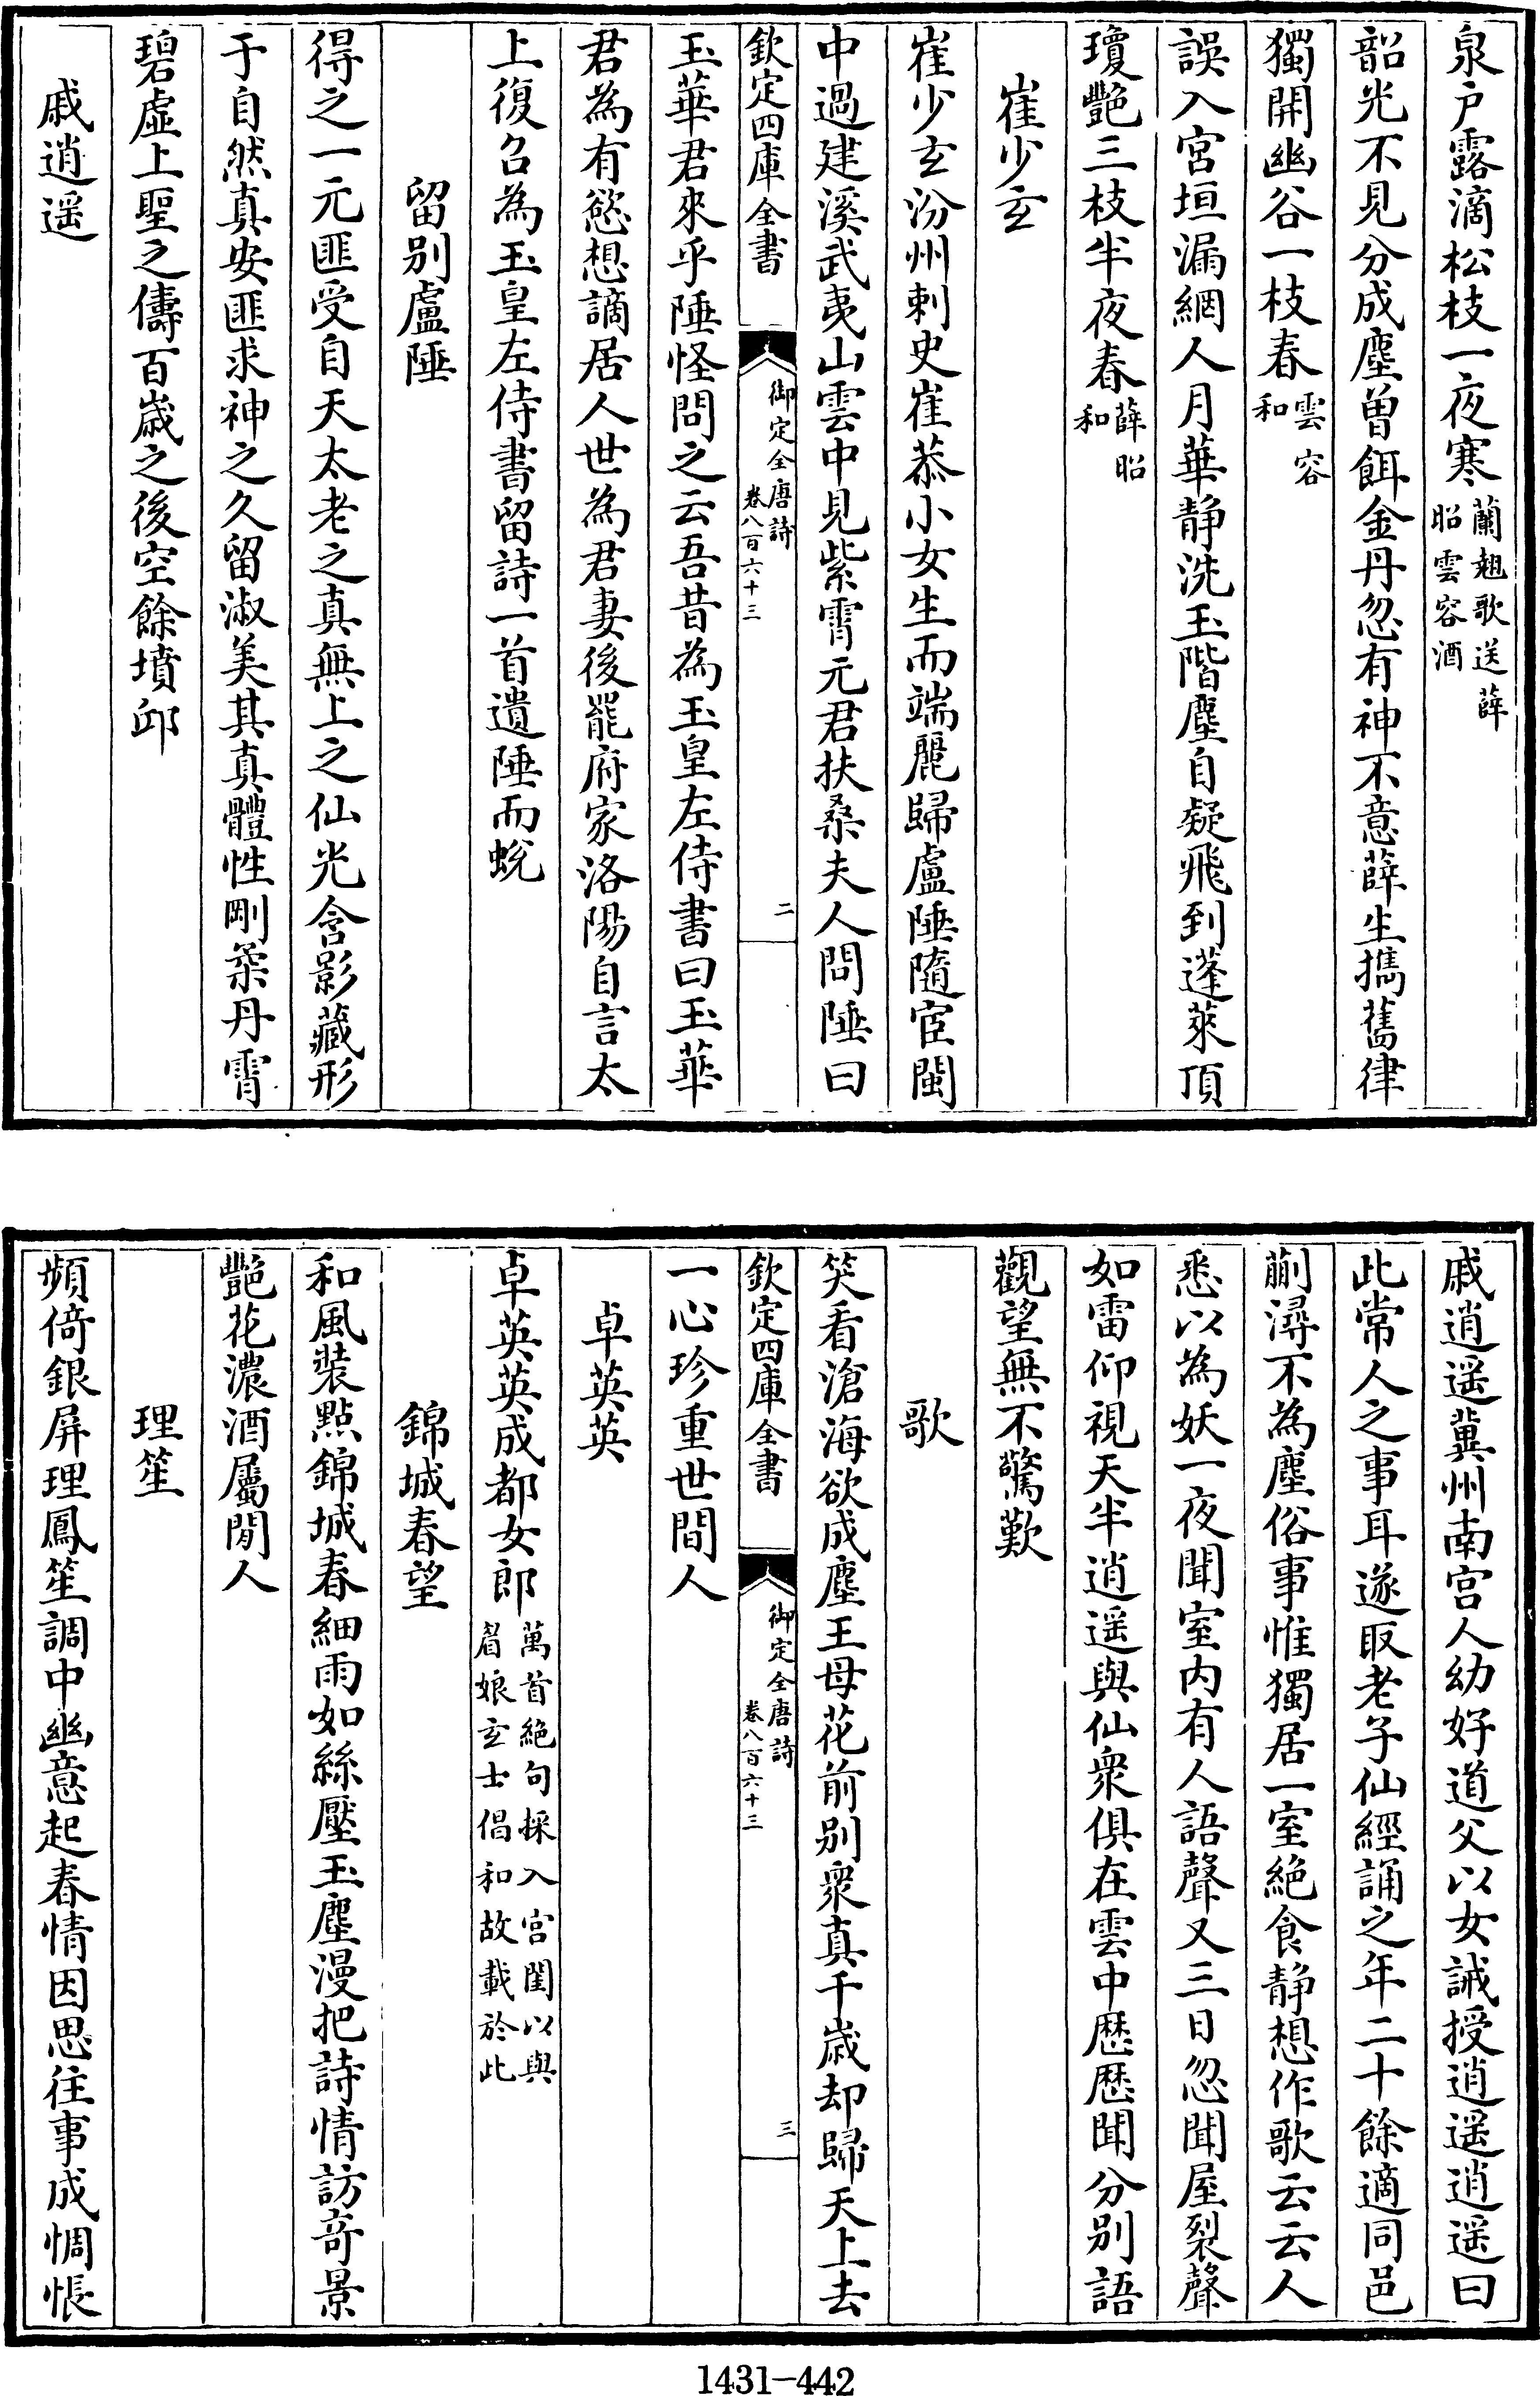 泉户露滴松枝一夜寒蘭翹歌送薛昭雲容酒
韶光不見分成塵曾餌金丹忽有神不意薛生攜舊律
獨開幽谷一枝春雲容和
誤入宮垣漏網人月華静洗玉階塵自疑飛到蓬萊頂
瓊艷三枝半夜春薛昭和
崔少玄
崔少玄汾州刺史崔恭小女生而端麗歸盧陲隨宦閩
中過建溪武夷山雲中見紫霄元君扶桑夫人問陲曰
欽定四庫全書
御定全唐詩
卷八百六十三
二
玉華君來乎陲怪問之云吾昔為玉皇左侍書曰玉華
君為有慾想謫居人世為君妻後罷府家洛陽自言太
上復召為玉皇左侍書留詩一首遺陲而蛻
留别盧陲
得之一元匪受自天太老之真無上之仙光含影藏形
于自然真安匪求神之久留淑美其真體性剛柔丹霄
碧虚上聖之儔百歲之後空餘墳邱
戚逍遥
戚逍遥冀州南宫人幼好道父以女誡授逍遥逍遥曰
此常人之事耳遂取老子仙經誦之年二十餘適同邑
蒯潯不為塵俗事惟獨居一室絶食静想作歌云云人
悉以為妖一夜聞室内有人語聲又三日忽聞屋裂聲
如雷仰視天半逍遥與仙衆俱在雲中歷歷聞分别語
觀望無不驚歎
歌
笑看滄海欲成塵王母花前别衆真千歲却歸天上去
欽定四庫全書
御定全唐詩
卷八百六十三
三
一心珍重世間人
卓英英
卓英英成都女郎萬首絶句採入宫閨以與眉娘玄士倡和故載於此
錦城春望
和風装點錦城春細雨如絲壓玉塵漫把詩情訪奇景
艷花濃酒屬閒人
理笙
頻倚銀屏理鳳笙調中幽意起春情因思往事成惆悵
1431-442